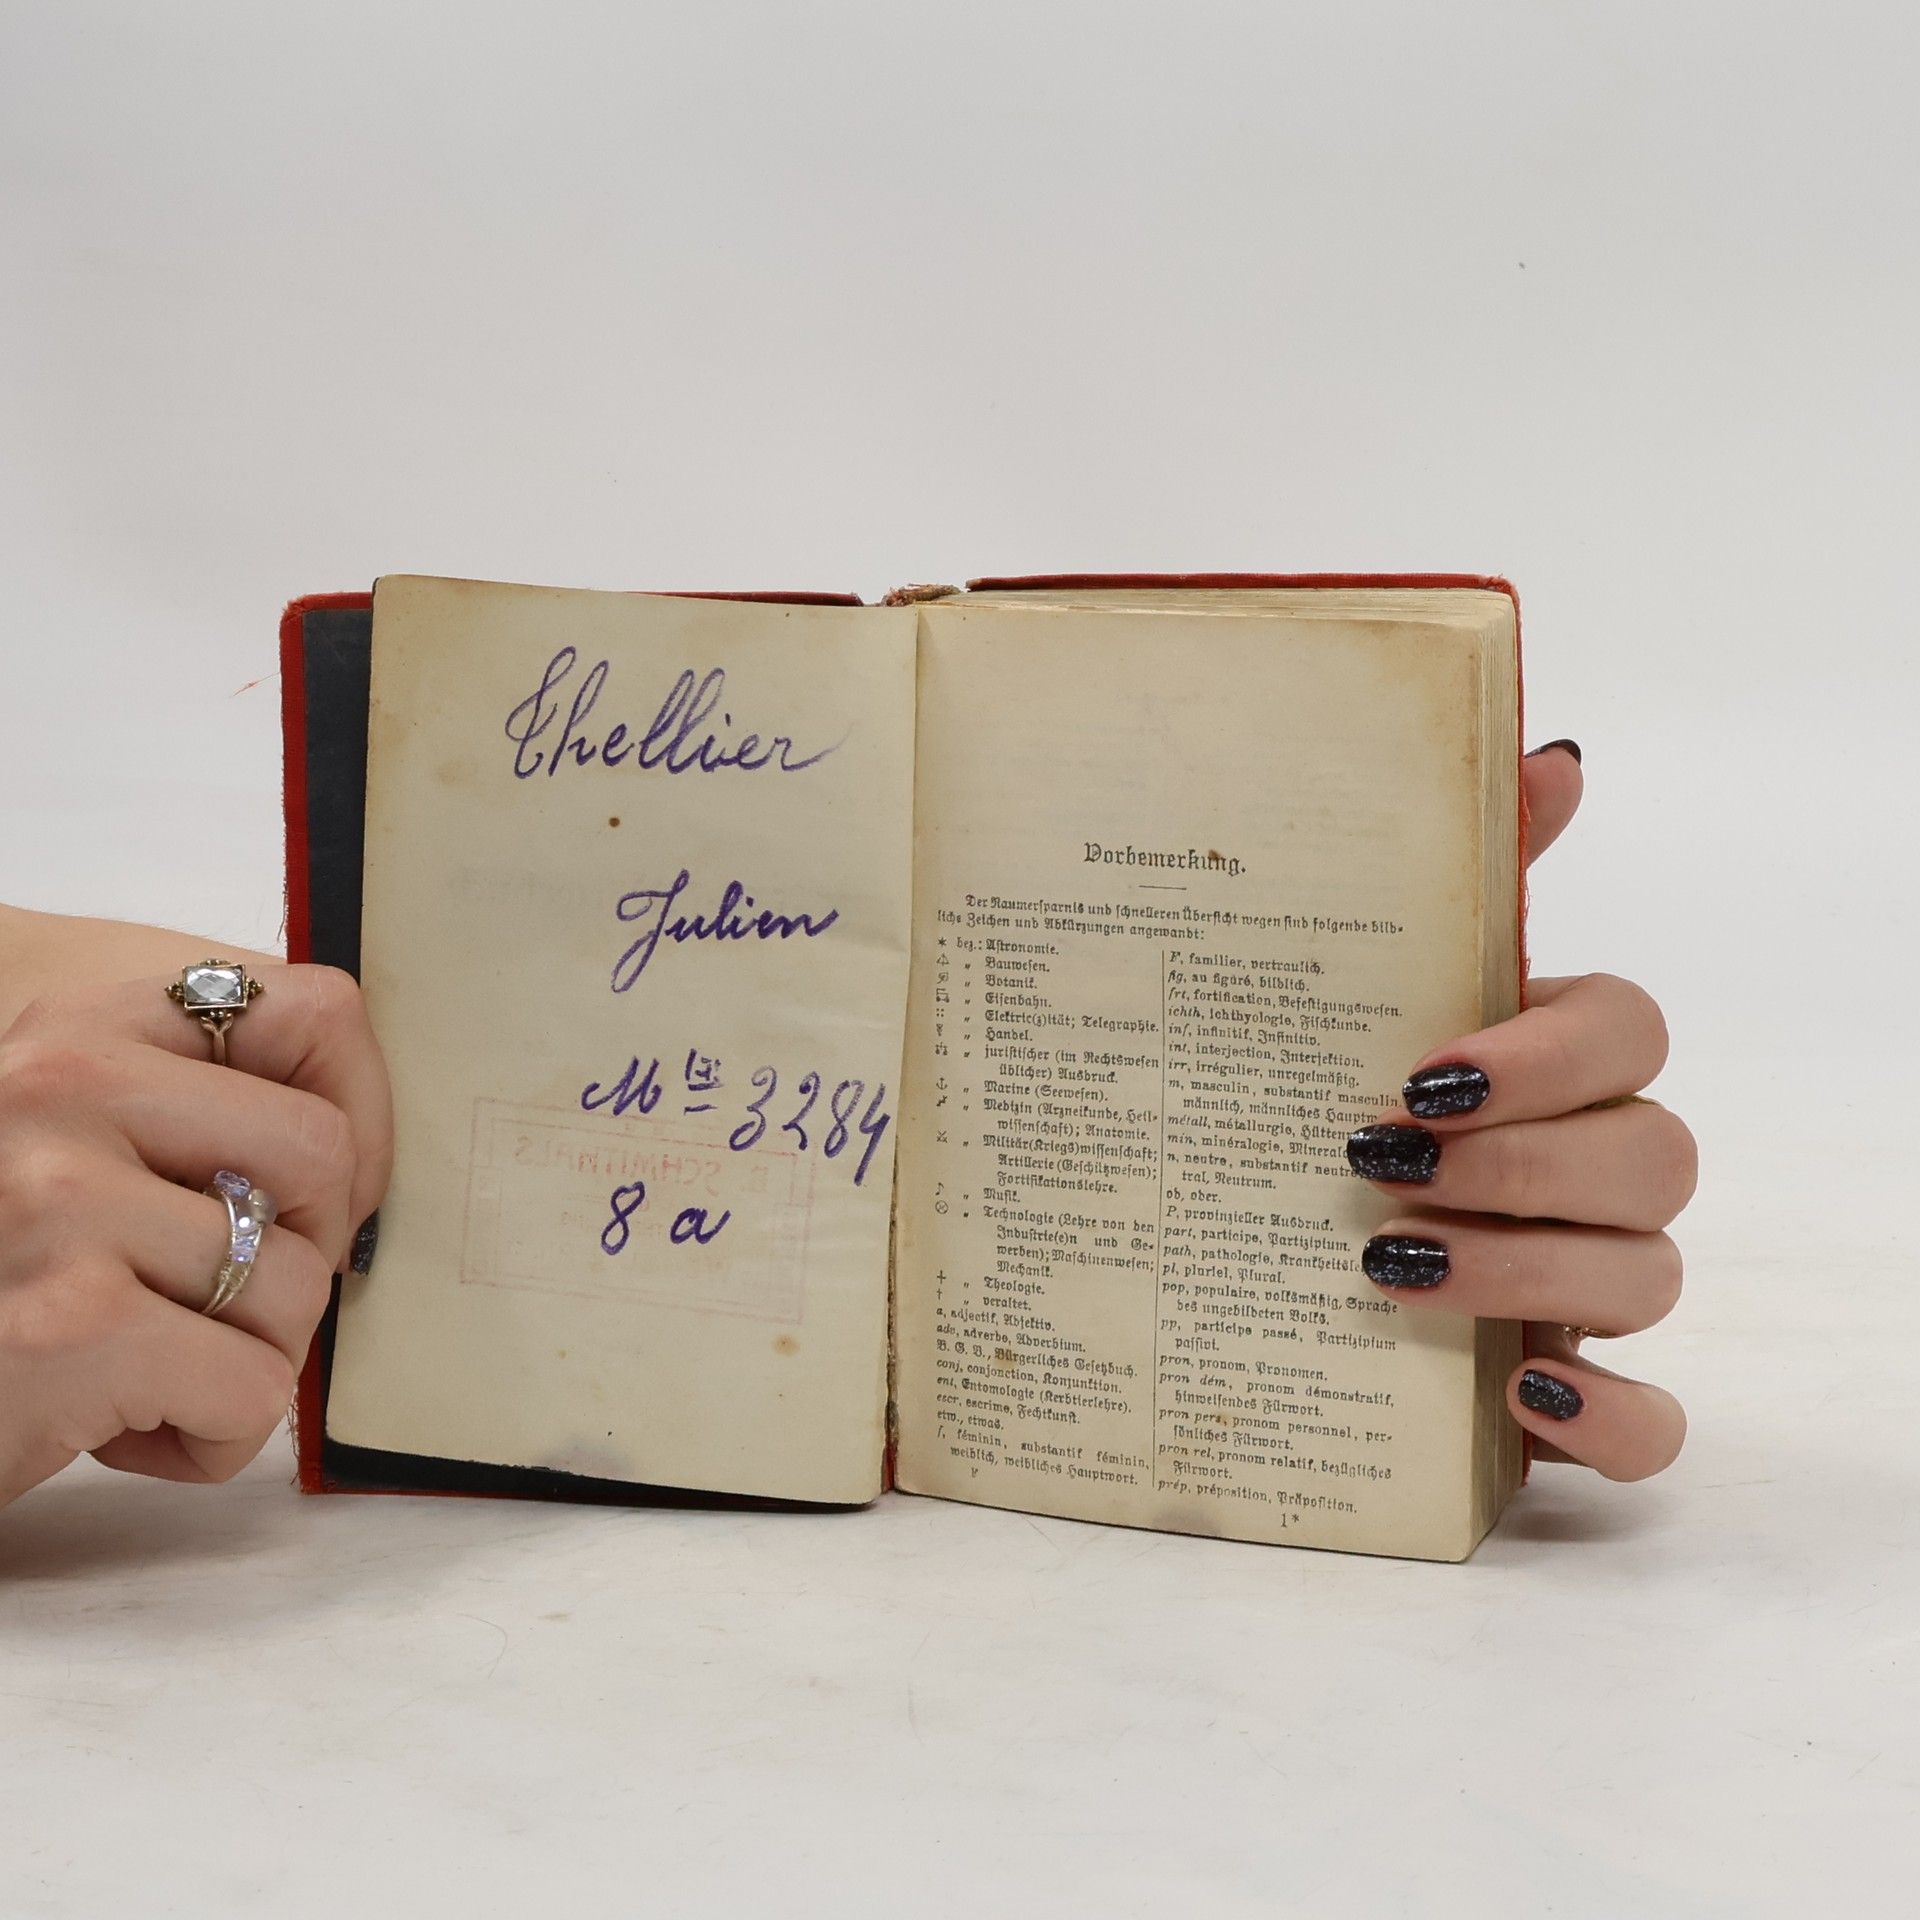 Thellier
Julien
Mle 3284
8 a
E. SCHMITHALS
Vorbemerkung.
Der Raumersparnis und schnelleren Übersicht wegen sind folgende bild-
liche Zeichen und Abkürzungen angewandt:
* bez.: Astronomie.
„ Bauwesen.
„ Botanik.
„ Eisenbahn.
:: „ Elektric(z)ität; Telegraphie.
„ Handel.
„ juristischer (im Rechtswesen
üblicher) Ausdruck.
⚓ „ Marine (Seewesen).
„ Medizin (Arzneikunde, Heil-
wissenschaft); Anatomie.
⚔ „ Militär(Kriegs)wissenschaft;
Artillerie (Geschützwesen);
Fortifikationslehre.
♪ „ Musik.
„ Technologie (Lehre von den
Industrie(e)n und Ge-
werben); Maschinenwesen;
Mechanik.
† „ Theologie.
† „ veraltet.
a, adjectif, Adjektiv.
adv, adverbe, Adverbium.
B. G. B., Bürgerliches Gesetzbuch.
conj, conjonction, Konjunktion.
ent, Entomologie (Kerbtierlehre).
escr, escrime, Fechtkunst.
etw., etwas.
f, féminin, substantif féminin,
weiblich, weibliches Hauptwort.
F, familier, vertraulich.
fig, au figuré, bildlich.
frt, fortification, Befestigungswesen.
ichth, ichthyologie, Fischkunde.
inf, infinitif, Infinitiv.
int, interjection, Interjektion.
irr, irrégulier, unregelmäßig.
m, masculin, substantif masculin,
männlich, männliches Hauptw
métall, métallurgie, Hütten
min, minéralogie, Mineral
n, neutre, substantif neutre,
tral, Neutrum.
ob, ober.
P, provinzieller Ausdruck.
part, participe, Partizipium.
path, pathologie, Krankheitsle
pl, pluriel, Plural.
pop, populaire, volksmäßig, Sprache
des ungebildeten Volks.
pp, participe passé, Partizipium
passivi.
pron, pronom, Pronomen.
pron dém, pronom démonstratif,
hinweisendes Fürwort.
pron pers, pronom personnel, per-
sönliches Fürwort.
pron rel, pronom relatif, bezügliches
Fürwort.
prép, préposition, Präposition.
1*